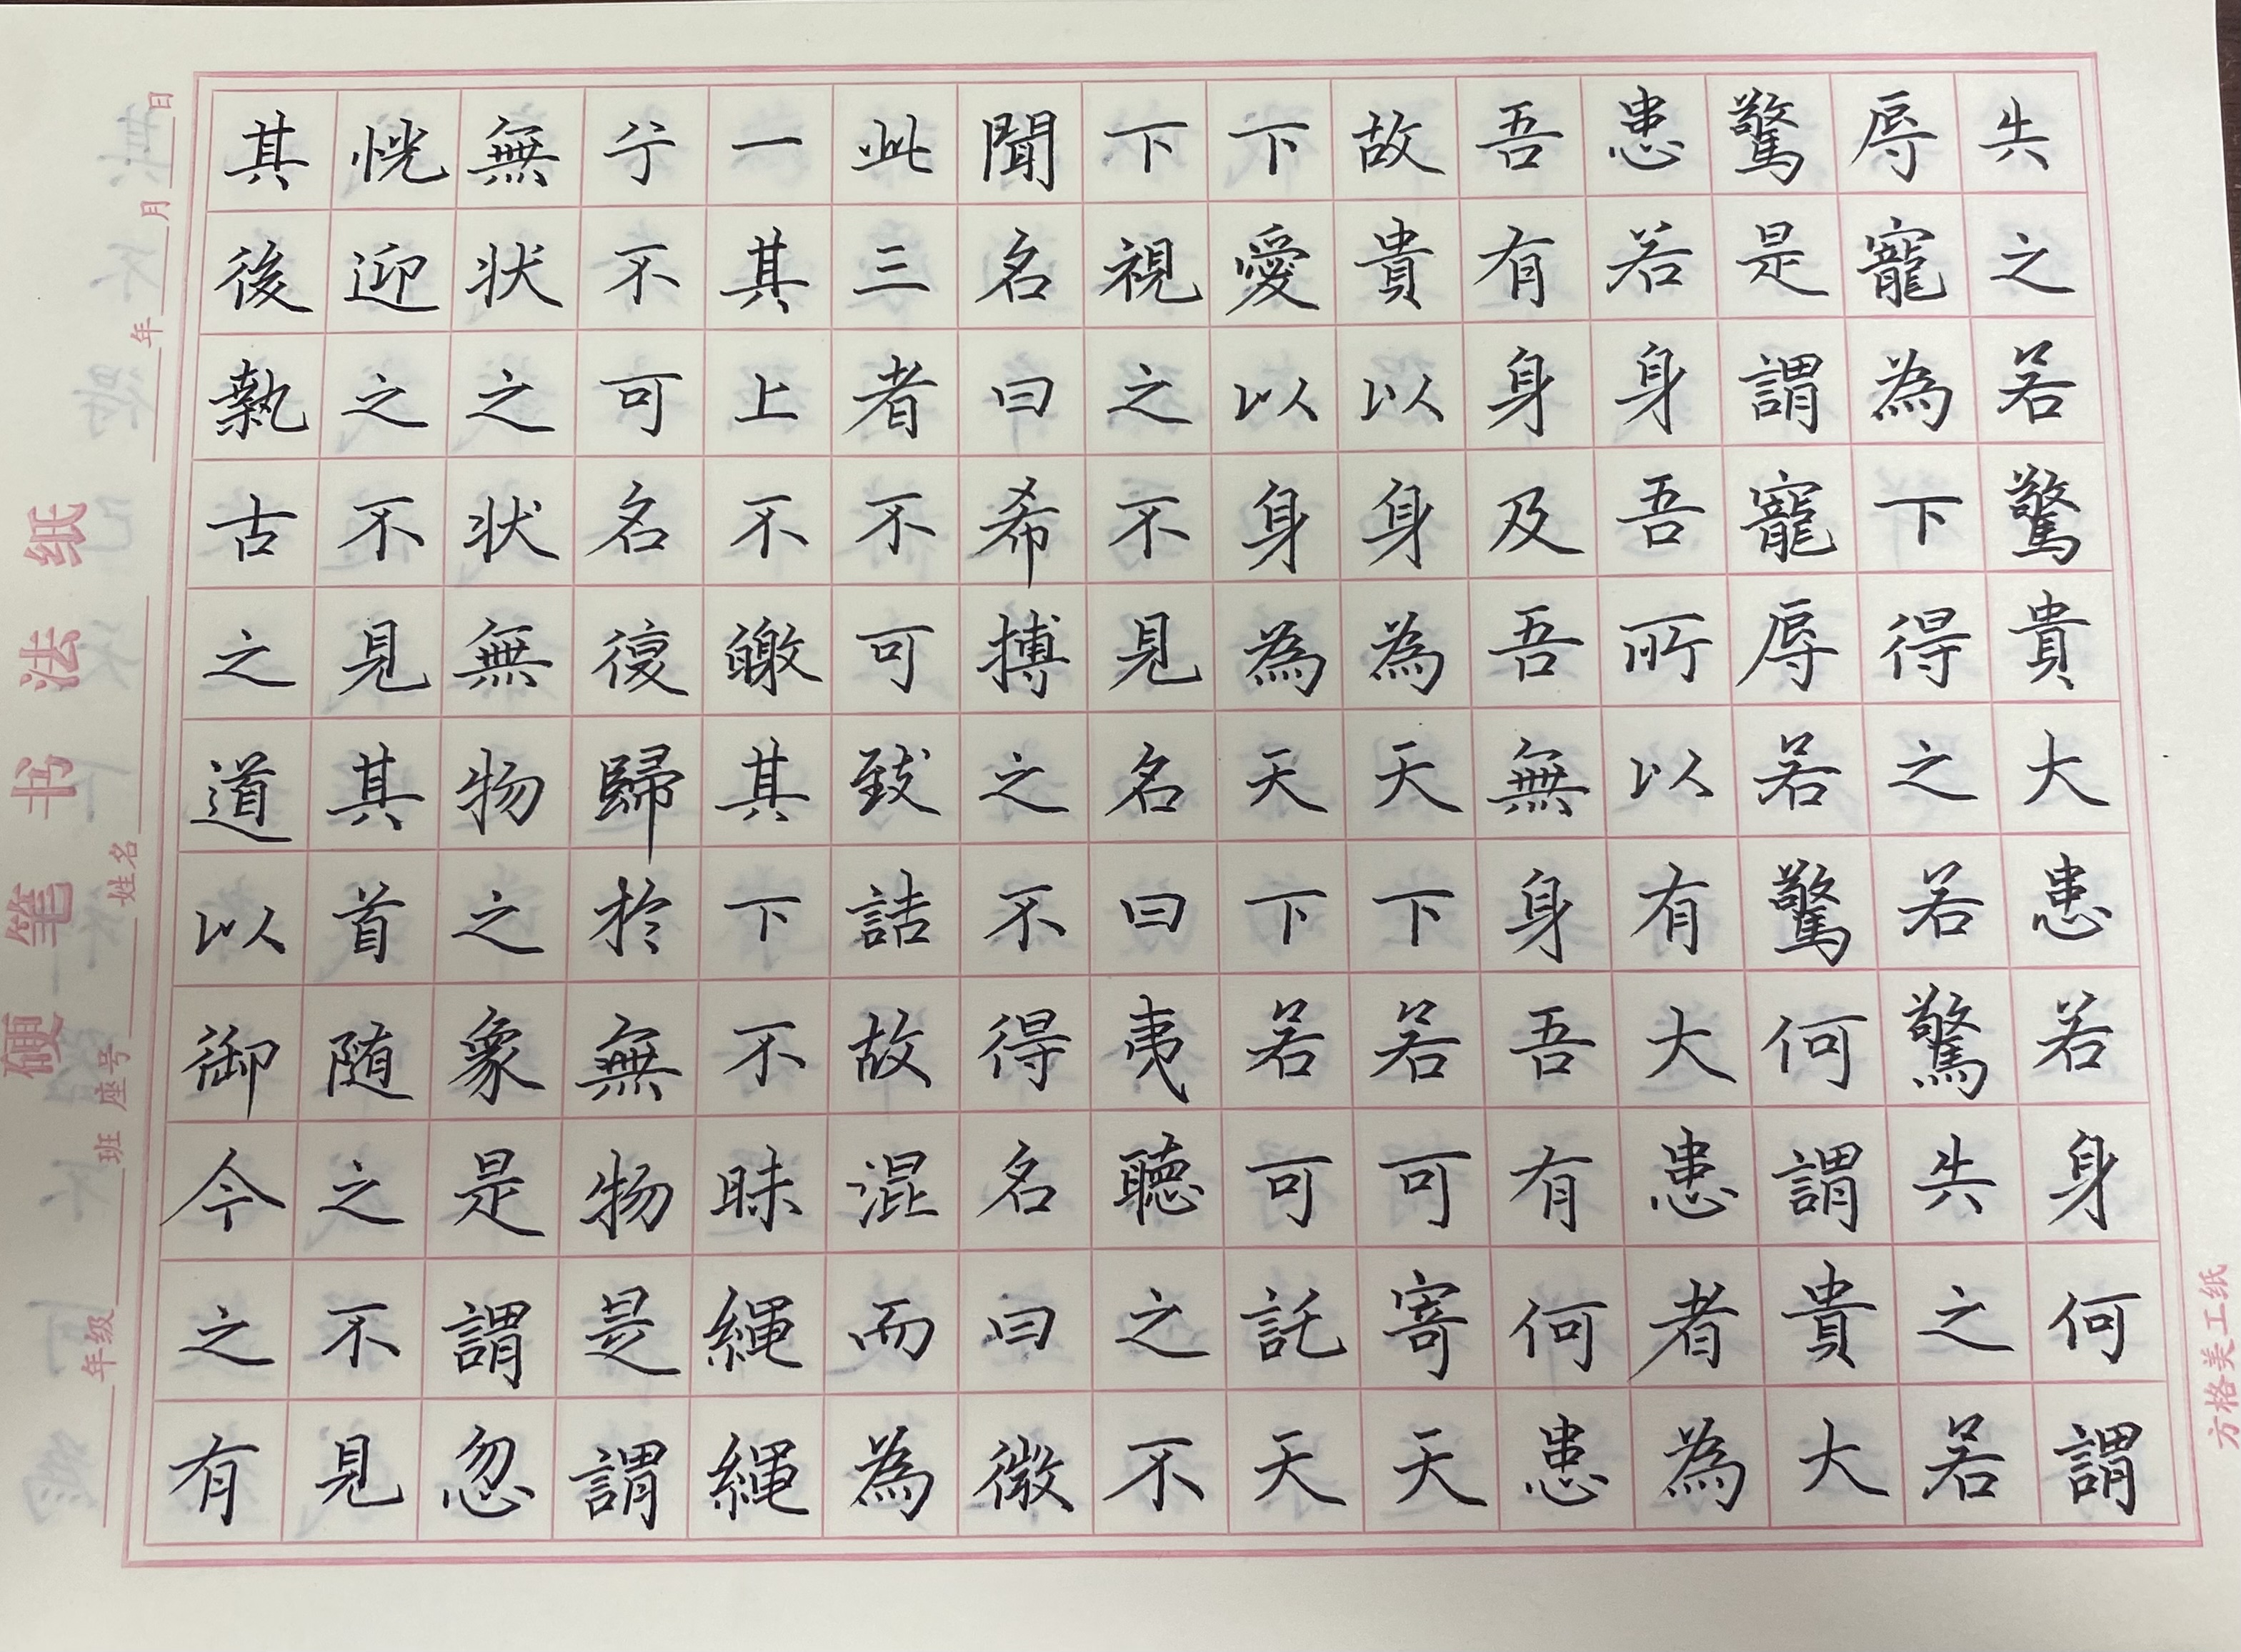 失之若驚貴大患若身何謂
辱寵為下得之若驚失之若
驚是謂寵辱若驚何謂貴大
患若身吾所以有大患者為
吾有身及吾無身吾有何患
故貴以身為天下若可寄天
下愛以身為天下若可託天
下視之不見名曰夷聴之不
聞名曰希搏之不得名曰微
此三者不可致詰故混而為
一其上不皦其下不昧縄縄
兮不可名復歸於無物是謂
無状之状無物之象是謂忽
恍迎之不見其首随之不見
其後執古之道以御今之有
硬笔书法纸
年级 班 座号 姓名 年 月 日
方格美工纸